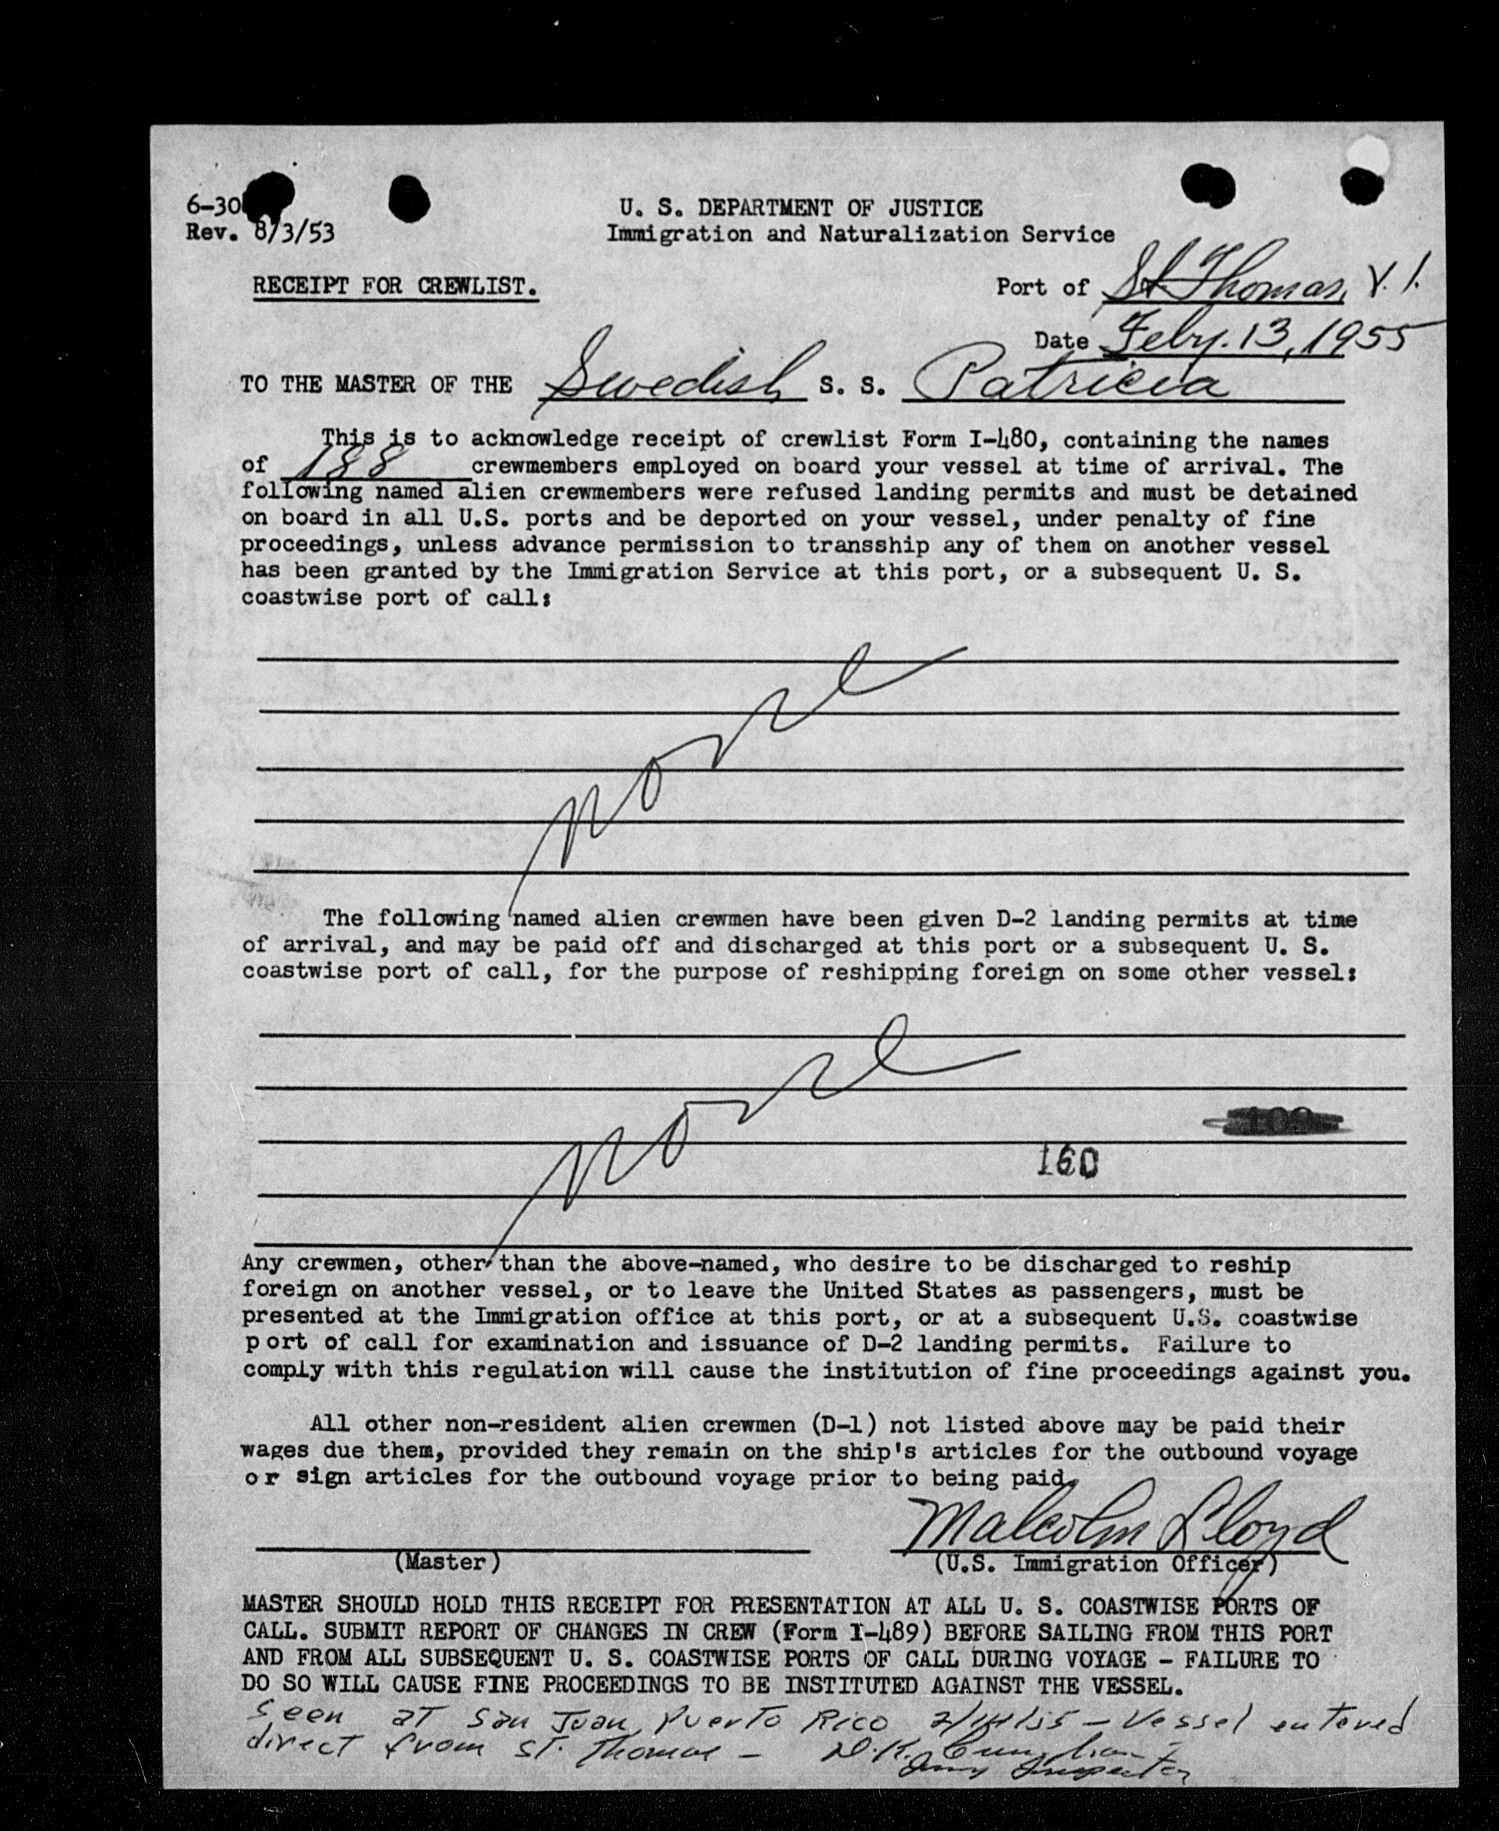 6-30
Rev. 8/3/53
U. S. DEPARTMENT OF JUSTICE
Immigration and Naturalization Service
RECEIPT FOR CREWLIST.
Port of St Thomas, V. I.
Date Feby. 13, 1955
TO THE MASTER OF THE Swedish S. S. Patricia
This is to acknowledge receipt of crewlist Form I-480, containing the names
of 188 crewmembers employed on board your vessel at time of arrival. The
following named alien crewmembers were refused landing permits and must be detained
on board in all U.S. ports and be deported on your vessel, under penalty of fine
proceedings, unless advance permission to transship any of them on another vessel
has been granted by the Immigration Service at this port, or a subsequent U. S.
coastwise port of call:
none
The following named alien crewmen have been given D-2 landing permits at time
of arrival, and may be paid off and discharged at this port or a subsequent U. S.
coastwise port of call, for the purpose of reshipping foreign on some other vessel:
none
160
Any crewmen, other than the above-named, who desire to be discharged to reship
foreign on another vessel, or to leave the United States as passengers, must be
presented at the Immigration office at this port, or at a subsequent U.S. coastwise
port of call for examination and issuance of D-2 landing permits. Failure to
comply with this regulation will cause the institution of fine proceedings against you.
All other non-resident alien crewmen (D-1) not listed above may be paid their
wages due them, provided they remain on the ship's articles for the outbound voyage
or sign articles for the outbound voyage prior to being paid.
Malcolm Lloyd
(Master) (U.S. Immigration Officer)
MASTER SHOULD HOLD THIS RECEIPT FOR PRESENTATION AT ALL U. S. COASTWISE PORTS OF
CALL. SUBMIT REPORT OF CHANGES IN CREW (Form I-489) BEFORE SAILING FROM THIS PORT
AND FROM ALL SUBSEQUENT U. S. COASTWISE PORTS OF CALL DURING VOYAGE - FAILURE TO
DO SO WILL CAUSE FINE PROCEEDINGS TO BE INSTITUTED AGAINST THE VESSEL.
Seen at San Juan, Puerto Rico 2/14/55 - Vessel entered
direct from St. Thomas -
Inspector